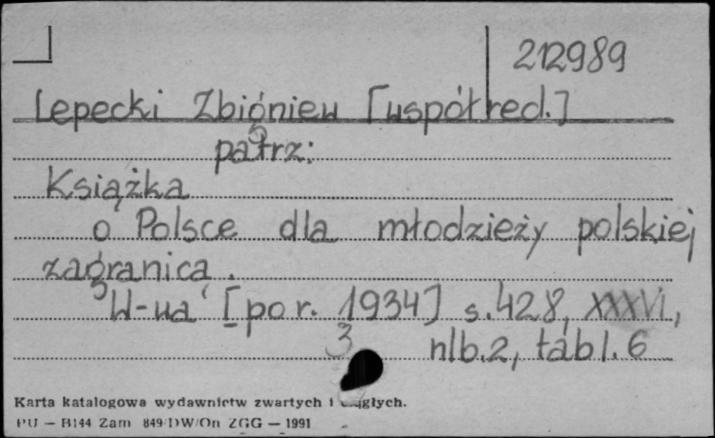 212989
Lepecki Zbigniew [współred.]
patrz:
Książka
o Polsce dla młodzieży polskiej
zagranicą.
W-wa [por. 1934] s. 428, XXXVI,
3 nlb. 2, tabl. 6
Karta katalogowa wydawnictw zwartych i ciągłych.
PU — B144 Zam 849/DW/On ZGG — 1991